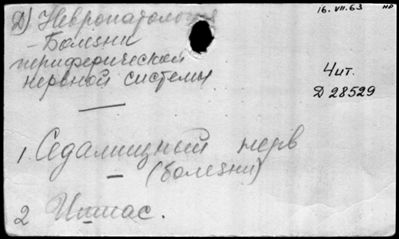 16.VII.63
Д) Невропатология
- Болезни
периферической
нервной системы
Чит.
Д 28529
1. Седалищный нерв
- (болезни)
2 Ишиас.